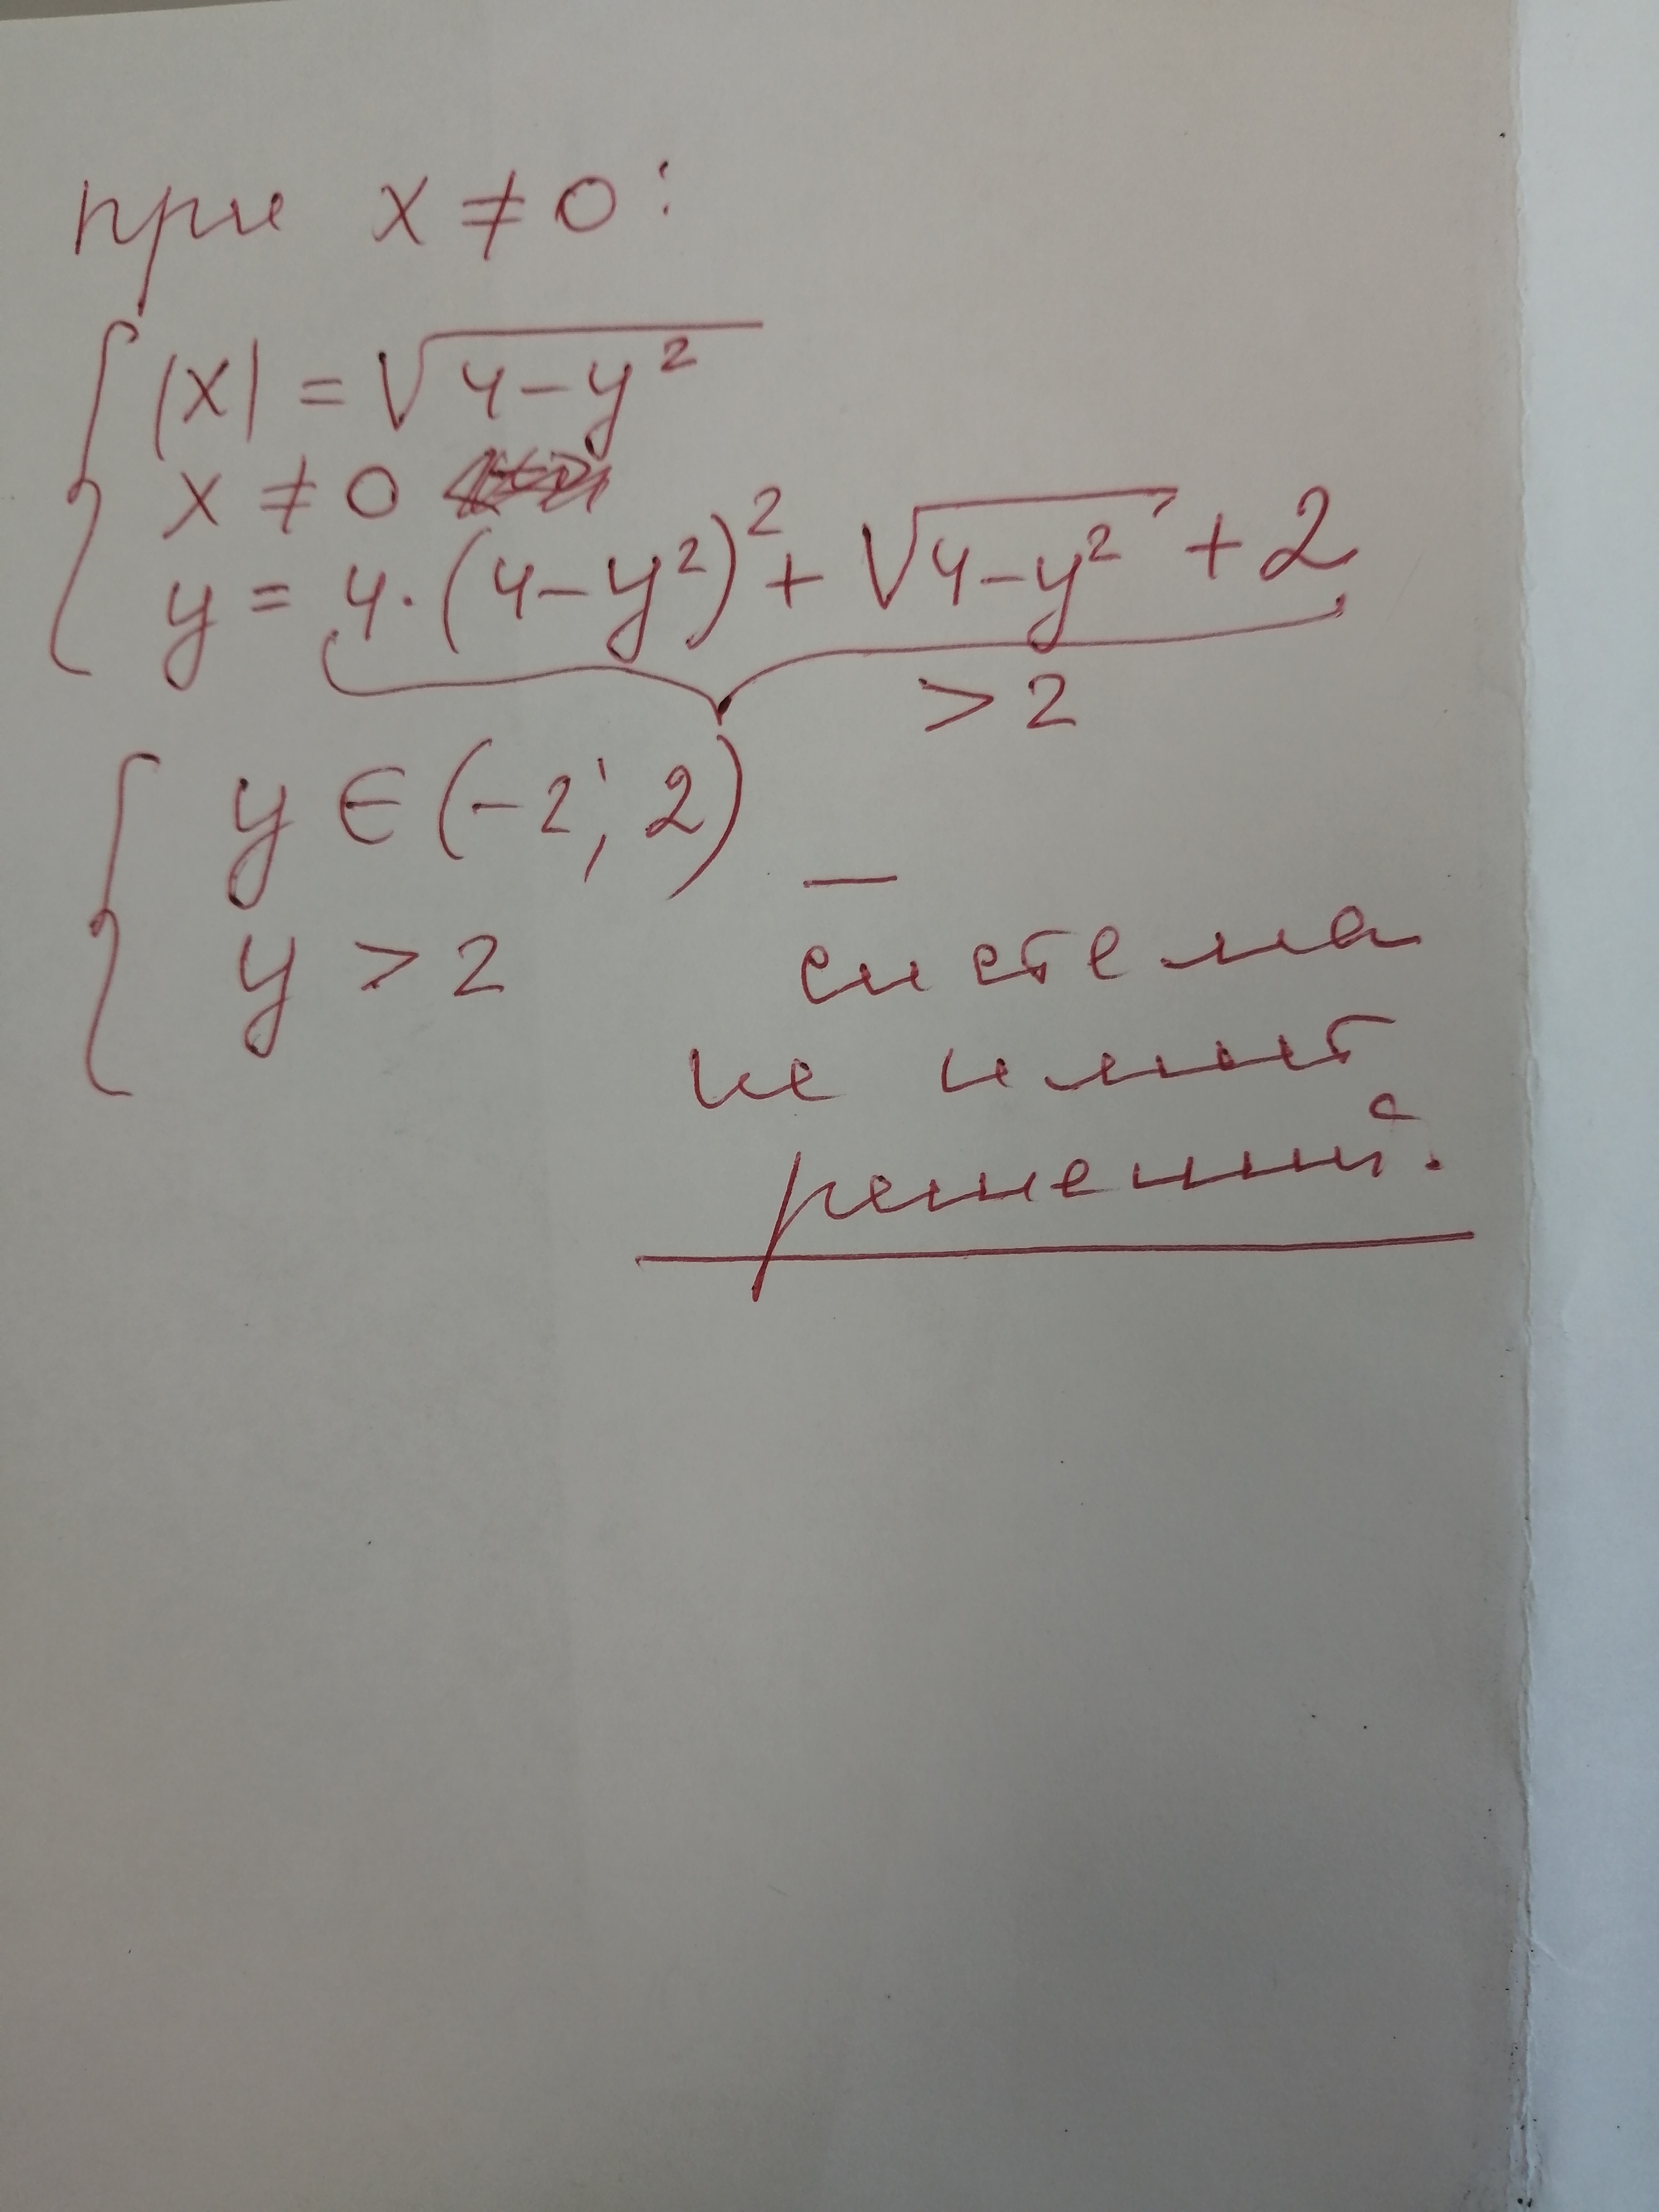 при x ≠ 0:
|x| = √(4-y²)
x ≠ 0
y = 4·(4-y²)² + √(4-y²) + 2
> 2
y ∈ (-2; 2)
y > 2
—
система
не имеет
решений.